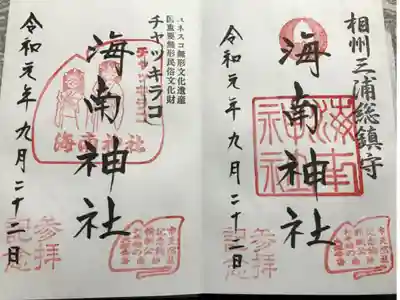 相州三浦総鎮守
海南神社
令和元年九月二十二日
参拝
記念
ユネスコ無形文化遺産
国重要無形民俗文化財
チャッキラコ
海南神社
チャッキラコ
海南神社
令和元年九月二十二日
参拝
記念